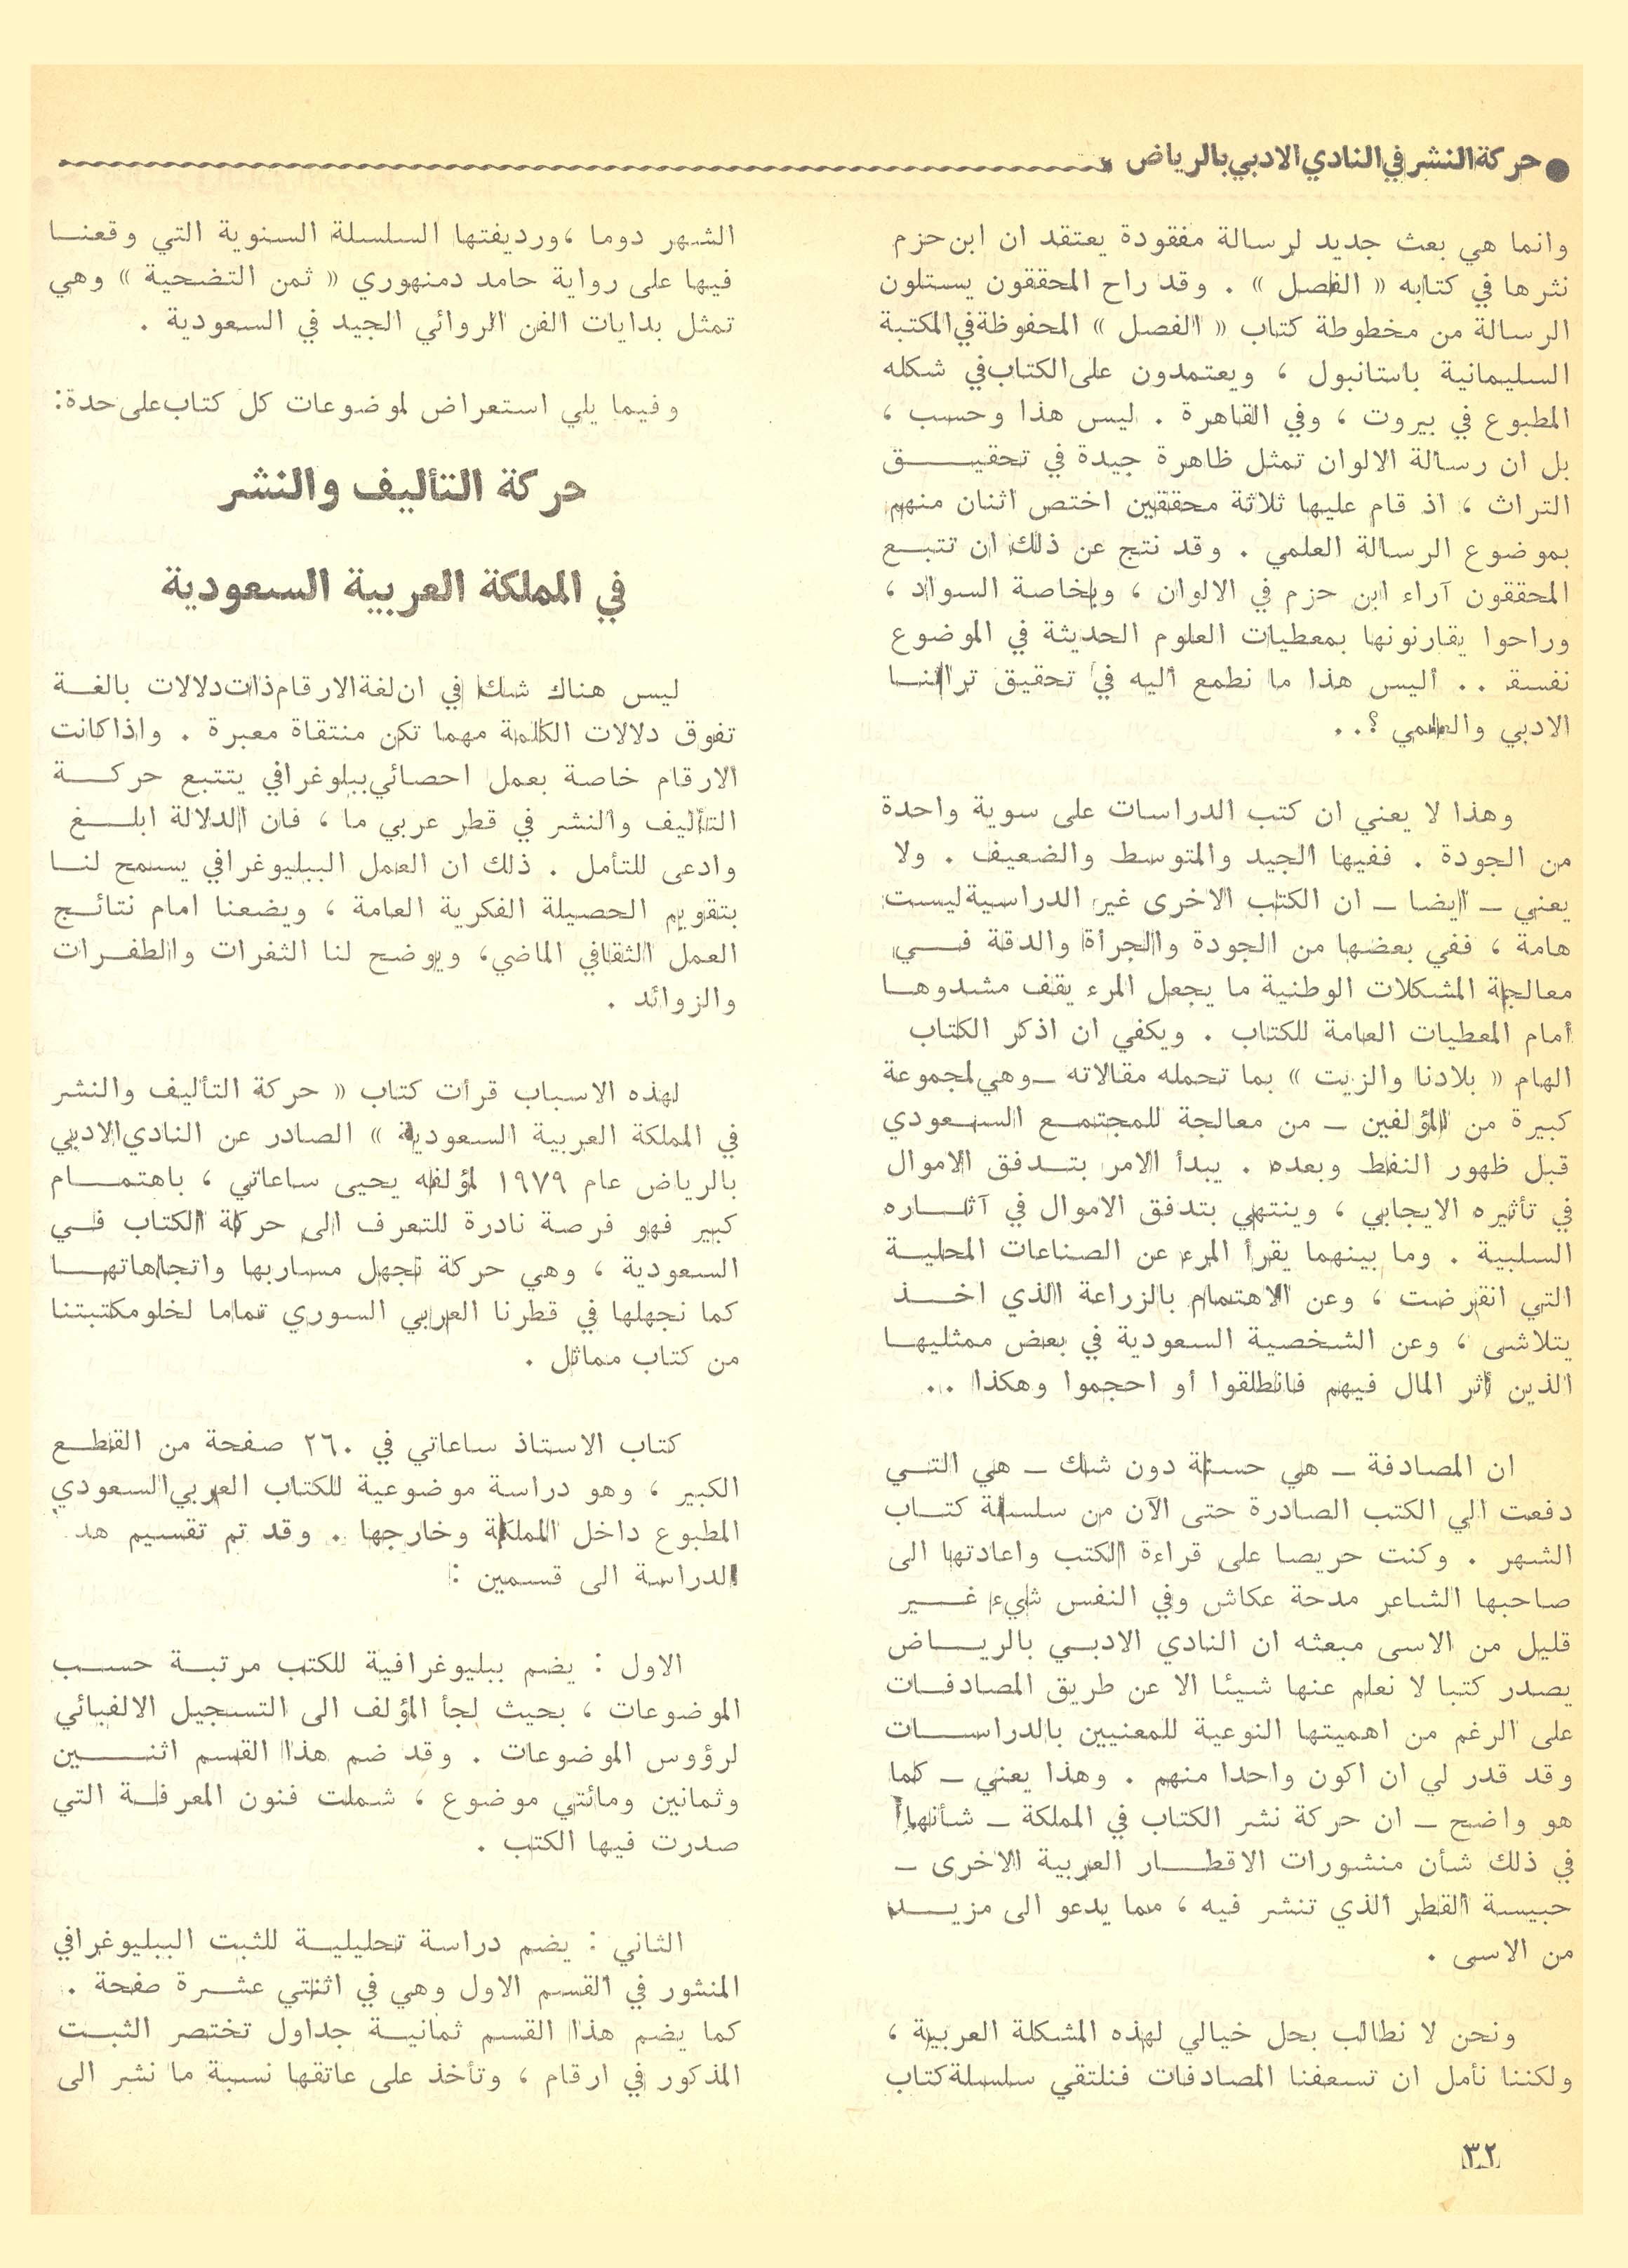 ● حركة النشر في النادي الادبي بالرياض
وانما هي بعث جديد لرسالة مفقودة يعتقد ان ابن حزم
نثرها في كتابه « الفصل » . وقد راح المحققون يستلون
الرسالة من مخطوطة كتاب « الفصل » المحفوظة في المكتبة
السليمانية باستانبول ، ويعتمدون على الكتاب في شكله
المطبوع في بيروت ، وفي القاهرة . ليس هذا وحسب ،
بل ان رسالة الالوان تمثل ظاهرة جيدة في تحقيق
التراث ، اذ قام عليها ثلاثة محققين اختص اثنان منهم
بموضوع الرسالة العلمي . وقد نتج عن ذلك ان تتبع
المحققون آراء ابن حزم في الالوان ، وبخاصة السواد ،
وراحوا يقارنونها بمعطيات العلوم الحديثة في الموضوع
نفسه .. أليس هذا ما نطمع اليه في تحقيق تراثنا
الادبي والعلمي ؟..
وهذا لا يعني ان كتب الدراسات على سوية واحدة
من الجودة . ففيها الجيد والمتوسط والضعيف . ولا
يعني ـ ايضا ـ ان الكتب الاخرى غير الدراسية ليست
هامة ، ففي بعضها من الجودة والجرأة والدقة في
معالجة المشكلات الوطنية ما يجعل المرء يقف مشدوها
أمام المعطيات العامة للكتاب . ويكفي ان اذكر الكتاب
الهام « بلادنا والزيت » بما تحمله مقالاته ـ وهي لمجموعة
كبيرة من المؤلفين ـ من معالجة للمجتمع السعودي
قبل ظهور النفط وبعده . يبدأ الامر بتدفق الاموال
في تأثيره الايجابي ، وينتهي بتدفق الاموال في آثاره
السلبية . وما بينهما يقرأ المرء عن الصناعات المحلية
التي انقرضت ، وعن الاهتمام بالزراعة الذي اخذ
يتلاشى ، وعن الشخصية السعودية في بعض ممثليها
الذين أثر المال فيهم فانطلقوا أو احجموا وهكذا ..
ان المصادفة ـ هي حسنة دون شك ـ هي التي
دفعت الي الكتب الصادرة حتى الآن من سلسلة كتاب
الشهر . وكنت حريصا على قراءة الكتب واعادتها الى
صاحبها الشاعر مدحة عكاش وفي النفس شيء غير
قليل من الاسى مبعثه ان النادي الادبي بالرياض
يصدر كتبا لا نعلم عنها شيئا الا عن طريق المصادفات
على الرغم من اهميتها النوعية للمعنيين بالدراسات
وقد قدر لي ان اكون واحدا منهم . وهذا يعني ـ كما
هو واضح ـ ان حركة نشر الكتاب في المملكة ـ شأنها
في ذلك شأن منشورات الاقطار العربية الاخرى ـ
حبيسة القطر الذي تنشر فيه ، مما يدعو الى مزيد
من الاسى .
ونحن لا نطالب بحل خيالي لهذه المشكلة العربية ،
ولكننا نأمل ان تسعفنا المصادفات فنلتقي سلسلة كتاب
الشهر دوما ، ورديفتها السلسلة السنوية التي وقعنا
فيها على رواية حامد دمنهوري « ثمن التضحية » وهي
تمثل بدايات الفن الروائي الجيد في السعودية .
وفيما يلي استعراض لموضوعات كل كتاب على حدة:
حركة التأليف والنشر
في المملكة العربية السعودية
ليس هناك شك في ان لغة الارقام ذات دلالات بالغة
تفوق دلالات الكلمة مهما تكن منتقاة معبرة . واذا كانت
الارقام خاصة بعمل احصائي ببلوغرافي يتتبع حركة
التأليف والنشر في قطر عربي ما ، فان الدلالة ابلغ
وادعى للتأمل . ذلك ان العمل الببليوغرافي يسمح لنا
بتقويم الحصيلة الفكرية العامة ، ويضعنا امام نتائج
العمل الثقافي الماضي، ويوضح لنا الثغرات والطفرات
والزوائد .
لهذه الاسباب قرأت كتاب « حركة التأليف والنشر
في المملكة العربية السعودية » الصادر عن النادي الادبي
بالرياض عام ١٩٧٩ لمؤلفه يحيى ساعاتي ، باهتمام
كبير فهو فرصة نادرة للتعرف الى حركة الكتاب في
السعودية ، وهي حركة نجهل مساربها واتجاهاتها
كما نجهلها في قطرنا العربي السوري تماما لخلو مكتبتنا
من كتاب مماثل .
كتاب الاستاذ ساعاتي في ٢٦٠ صفحة من القطع
الكبير ، وهو دراسة موضوعية للكتاب العربي السعودي
المطبوع داخل المملكة وخارجها . وقد تم تقسيم هد
الدراسة الى قسمين :
الاول : يضم ببليوغرافية للكتب مرتبة حسب
الموضوعات ، بحيث لجأ المؤلف الى التسجيل الالفبائي
لرؤوس الموضوعات . وقد ضم هذا القسم اثنين
وثمانين ومائتي موضوع ، شملت فنون المعرفة التي
صدرت فيها الكتب .
الثاني : يضم دراسة تحليلية للثبت الببليوغرافي
المنشور في القسم الاول وهي في اثنتي عشرة صفحة .
كما يضم هذا القسم ثمانية جداول تختصر الثبت
المذكور في ارقام ، وتأخذ على عاتقها نسبة ما نشر الى
٣٢